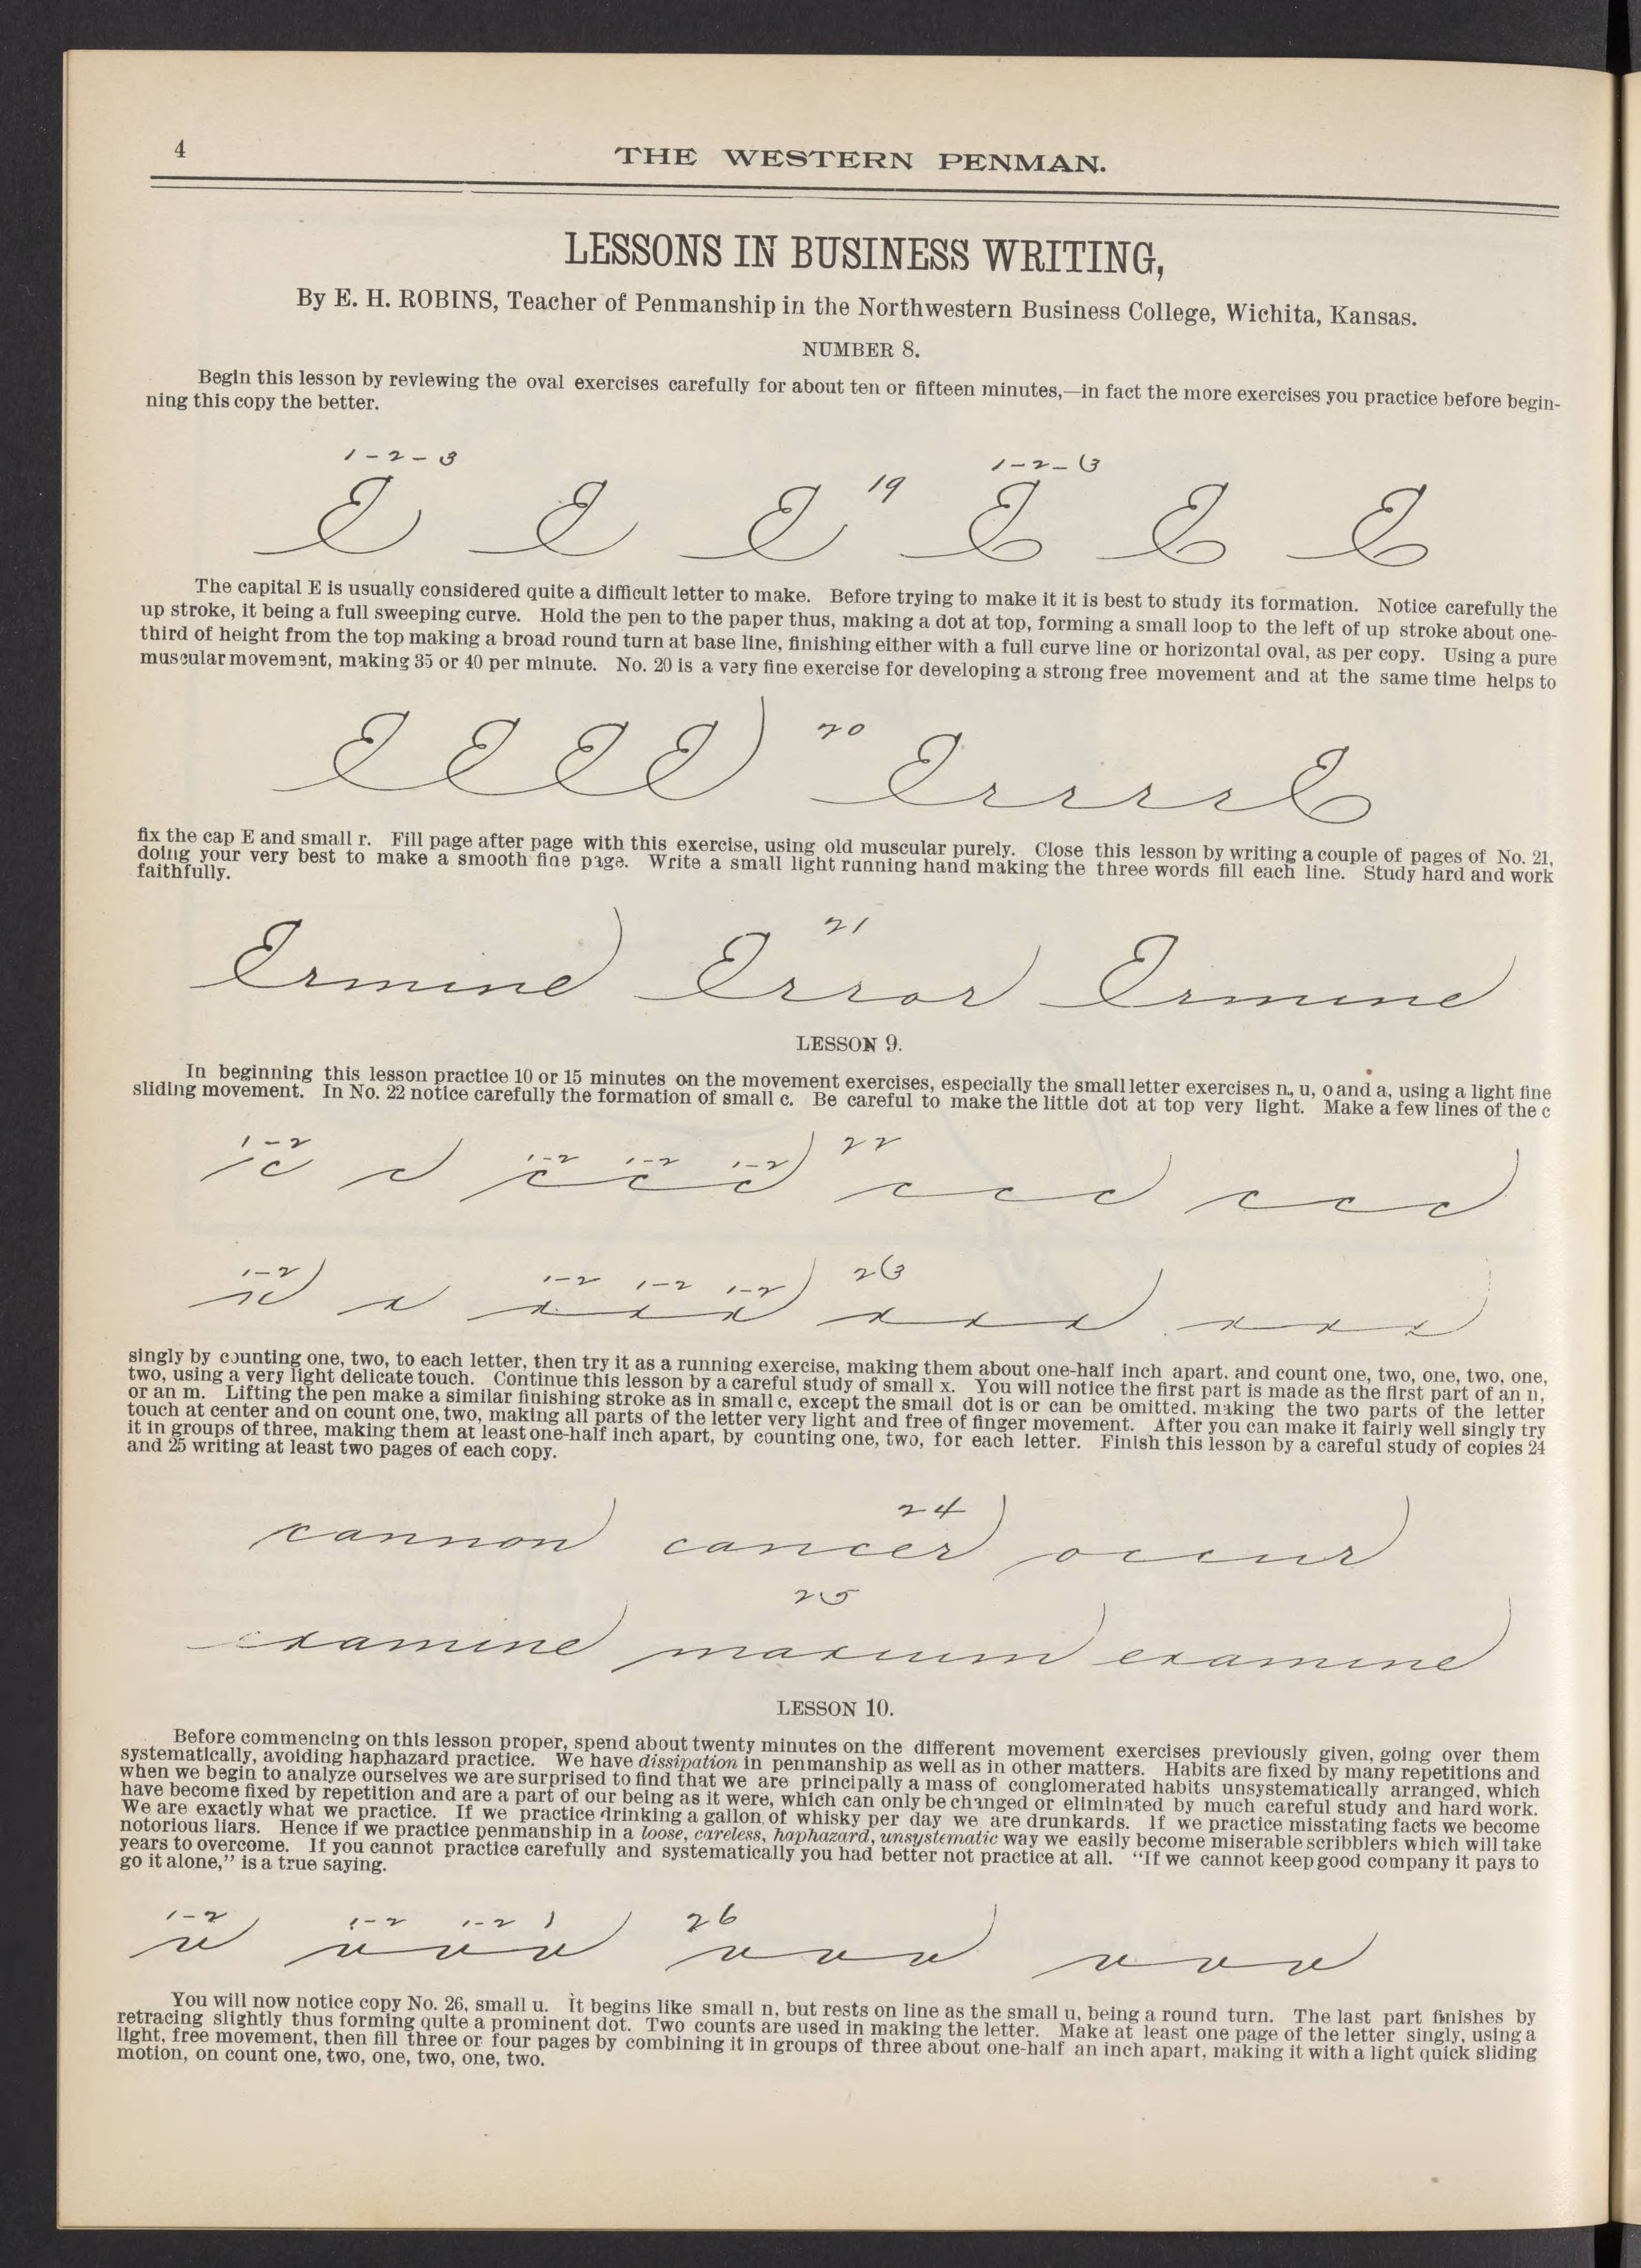 4
THE WESTERN PENMAN.
LESSONS IN BUSINESS WRITING,
By E. H. ROBINS, Teacher of Penmanship in the Northwestern Business College, Wichita, Kansas.
NUMBER 8.
Begin this lesson by reviewing the oval exercises carefully for about ten or fifteen minutes,—in fact the more exercises you practice before begin-
ning this copy the better.
1-2-3 1-2-3
E E E 19 E E E
The capital E is usually considered quite a difficult letter to make. Before trying to make it it is best to study its formation. Notice carefully the
up stroke, it being a full sweeping curve. Hold the pen to the paper thus, making a dot at top, forming a small loop to the left of up stroke about one-
third of height from the top making a broad round turn at base line, finishing either with a full curve line or horizontal oval, as per copy. Using a pure
muscular movement, making 35 or 40 per minute. No. 20 is a very fine exercise for developing a strong free movement and at the same time helps to
E E E E 20 E r r r r r E
fix the cap E and small r. Fill page after page with this exercise, using old muscular purely. Close this lesson by writing a couple of pages of No. 21,
doing your very best to make a smooth fine page. Write a small light running hand making the three words fill each line. Study hard and work
faithfully.
21
Ermine Error Ermine
LESSON 9.
In beginning this lesson practice 10 or 15 minutes on the movement exercises, especially the small letter exercises n., u, o and a, using a light fine
sliding movement. In No. 22 notice carefully the formation of small c. Be careful to make the little dot at top very light. Make a few lines of the c
1-2 1-2 1-2 1-2 22
c c c c c c c c c c c
1-2 1-2 1-2 1-2 23
x x x x x x x x x x x
singly by counting one, two, to each letter, then try it as a running exercise, making them about one-half inch apart. and count one, two, one, two, one,
two, using a very light delicate touch. Continue this lesson by a careful study of small x. You will notice the first part is made as the first part of an n,
or an m. Lifting the pen make a similar finishing stroke as in small c, except the small dot is or can be omitted. making the two parts of the letter
touch at center and on count one, two, making all parts of the letter very light and free of finger movement. After you can make it fairly well singly try
it in groups of three, making them at least one-half inch apart, by counting one, two, for each letter. Finish this lesson by a careful study of copies 24
and 25 writing at least two pages of each copy.
24
cannon cancer occur
25
examine maxium examine
LESSON 10.
Before commencing on this lesson proper, spend about twenty minutes on the different movement exercises previously given, going over them
systematically, avoiding haphazard practice. We have dissipation in penmanship as well as in other matters. Habits are fixed by many repetitions and
when we begin to analyze ourselves we are surprised to find that we are principally a mass of conglomerated habits unsystematically arranged, which
have become fixed by repetition and are a part of our being as it were, which can only be changed or eliminated by much careful study and hard work.
We are exactly what we practice. If we practice drinking a gallon of whisky per day we are drunkards. If we practice misstating facts we become
notorious liars. Hence if we practice penmanship in a loose, careless, haphazard, unsystematic way we easily become miserable scribblers which will take
years to overcome. If you cannot practice carefully and systematically you had better not practice at all. “If we cannot keep good company it pays to
go it alone,” is a true saying.
1-2 1-2 1-2 1 26
u u u u u u u u u u
You will now notice copy No. 26, small u. It begins like small n, but rests on line as the small u, being a round turn. The last part finishes by
retracing slightly thus forming quite a prominent dot. Two counts are used in making the letter. Make at least one page of the letter singly, using a
light, free movement, then fill three or four pages by combining it in groups of three about one-half an inch apart, making it with a light quick sliding
motion, on count one, two, one, two, one, two.